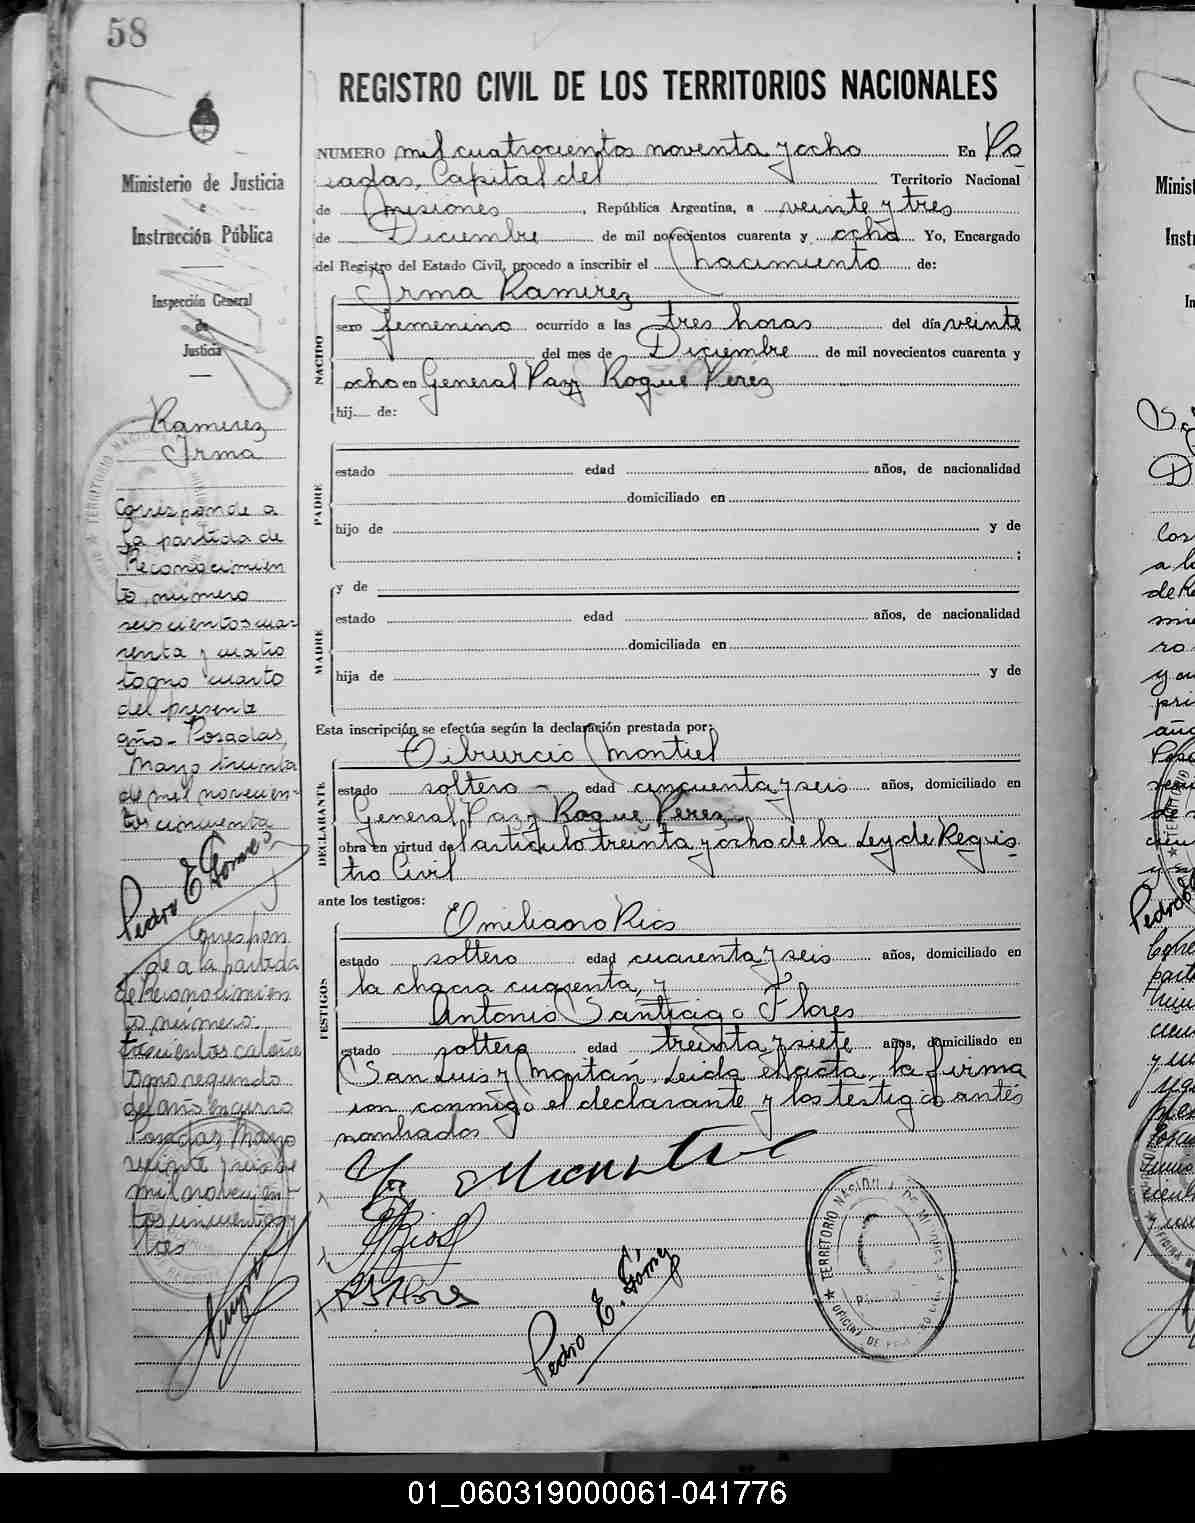 58
Ministerio de Justicia
e
Instrucción Pública
Inspección General
de
Justicia
Ramirez
Irma
Corresponde a
la partida de
Reconocimien
to, número
seiscientos cua-
renta y cuatro
tomo cuarto
del presente
año- Posadas,
Mayo treinta
de mil novecien-
tos cincuenta
Pedro E Gómez
Correspon
de a la partida
de Reconocimien
to número
trescientos catorce
tomo segundo
del año en curso
Posadas, Mayo
veinte y seis de
mil novecien-
tos cincuenta y
tres
REGISTRO CIVIL DE LOS TERRITORIOS NACIONALES
NUMERO mil cuatrocientos noventa y ocho En Po
sadas, Capital del Territorio Nacional
de Misiones, República Argentina, a veinte y tres
de Diciembre de mil novecientos cuarenta y ocho Yo, Encargado
del Registro del Estado Civil, procedo a inscribir el nacimiento de:
Irma Ramirez
NACIDO
sexo femenino ocurrido a las tres horas del día veinte
del mes de Diciembre de mil novecientos cuarenta y
ocho en General Paz y Roque Perez
hij de:
PADRE
estado edad años, de nacionalidad
domiciliado en
hijo de y de
;
y de
MADRE
estado edad años, de nacionalidad
domiciliada en
hija de y de
Esta inscripción se efectúa según la declaración prestada por:
Tiburcio Montiel
DECLARANTE
estado soltero - edad cincuenta y seis años, domiciliado en
General Paz y Roque Perez
obra en virtud del artículo treinta y ocho de la Ley de Regis-
tro Civil
ante los testigos:
Emiliano Rios
TESTIGOS
estado soltero edad cuarenta y seis años, domiciliado en
la chacra cuarenta, y
Antonio Santiago Flores
estado soltero edad treinta y siete años, domiciliado en
San Luis y Maitán. Leida el acta, la firma
ron conmigo el declarante y los testigos antes
nombrados
Montiel
Rios
Flores
Pedro E. Gómez
TERRITORIO NACIONAL DE MISIONES
OFICINA DE
01_060319000061-041776